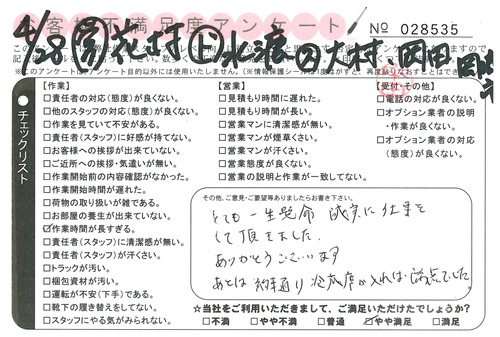 お客様不満足度アンケート
No 028535
チェックリスト
【作業】
□責任者の対応(態度)が良くない。
□他のスタッフの対応(態度)が良くない。
□作業を見ていて不安がある。
□責任者(スタッフ)に好感が持てない。
□お客様への挨拶が出来ていない。
□ご近所への挨拶・気遣いが無い。
□作業開始前の内容確認がなかった。
□作業開始時間が遅れた。
□荷物の取り扱いが雑である。
□お部屋の養生が出来ていない。
☑作業時間が長すぎる。
□責任者(スタッフ)に清潔感が無い。
□責任者(スタッフ)が汗くさい。
□トラックが汚い。
□梱包資材が汚い。
□運転が不安(下手)である。
□靴下の履き替えをしてない。
□スタッフにやる気がみられない。
【営業】
□営業時間に遅れた。
□見積もり時間が長い。
□営業マンに清潔感が無い。
□営業マンが煙草くさい。
□営業マンが汗くさい。
□営業態度が良くない。
□営業の説明と作業が一致してない。
【受付・その他】
□電話の対応が良くない。
□オプション業者の説明
・作業が良くない。
□オプション業者の対応
(態度)が良くない。
その他、ご意見・ご要望等ありましたらお書き下さい。
とても一生懸命 誠実に仕事を
して頂きました。
ありがとうございます
あとは 時間通り 冷蔵庫が入れば 満点でした。
☆当社をご利用いただきまして、ご満足いただけたでしょうか?
□不満 □やや不満 □普通 ☑やや満足 □満足